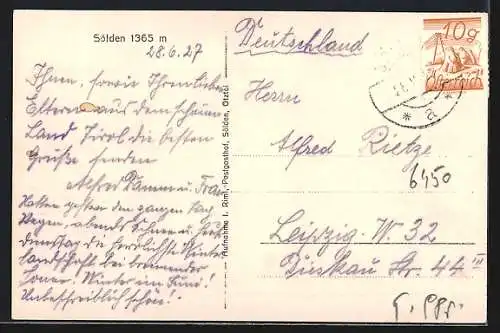 Sölden 1365 m
28.6.27
Ihnen, sowie Ihren lieben
Eltern aus dem schönen
Land Tirol die besten
Grüße senden
Alfred Damm u. Frau
Hatten gestern den ganzen Tag
Regen, abends Schnee u. heute
Dienstag die herrlichste Winter
landschaft bei brennender
Sonne. Winter im Juni!
Unbeschreiblich schön!
Aufnahme I. Riml, Postgasthof, Sölden, Ötztal
Deutschland
10g
Österreich
Herrn
Alfred Rietze
6450
Leipzig-W. 32
Dieskau Str. 44 III